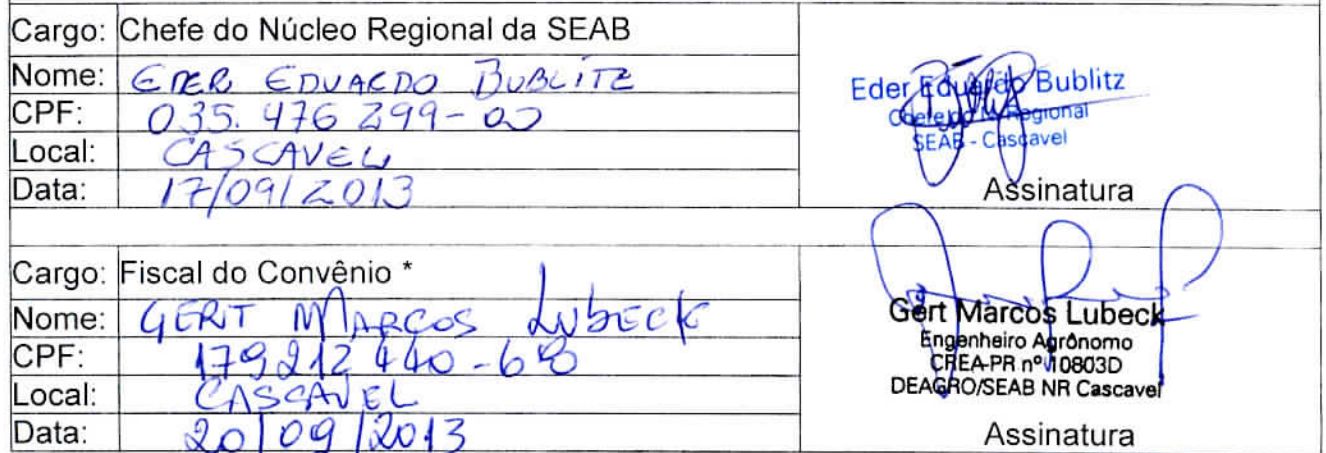 Cargo: Chefe do Núcleo Regional da SEAB
Nome: EDER EDUARDO BUBLITZ
CPF: 035.476 299-00
Local: CASCAVEL
Data: 17/09/2013
Eder Eduardo Bublitz
Chefe do N. Regional
SEAB - Cascavel
Assinatura
Cargo: Fiscal do Convênio *
Nome: GERT MARCOS LUBECK
CPF: 179212 440-68
Local: CASCAVEL
Data: 20/09/2013
Gert Marcos Lubeck
Engenheiro Agrônomo
CREA-PR nº 10803D
DEAGRO/SEAB NR Cascavel
Assinatura